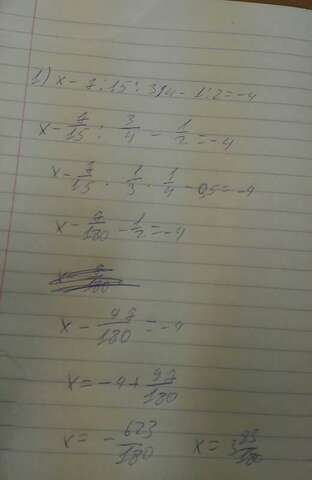 1) x - 7 : 15 : 3/4 - 1 : 2 = -4
x - 7/15 : 3/4 - 1/2 = -4
x - 7/15 · 1/3 · 1/4 - 0,5 = -4
x - 7/180 - 1/2 = -4
x - 97/180 = -4
x = -4 + 97/180
x = - 623/180 x = 3 83/180